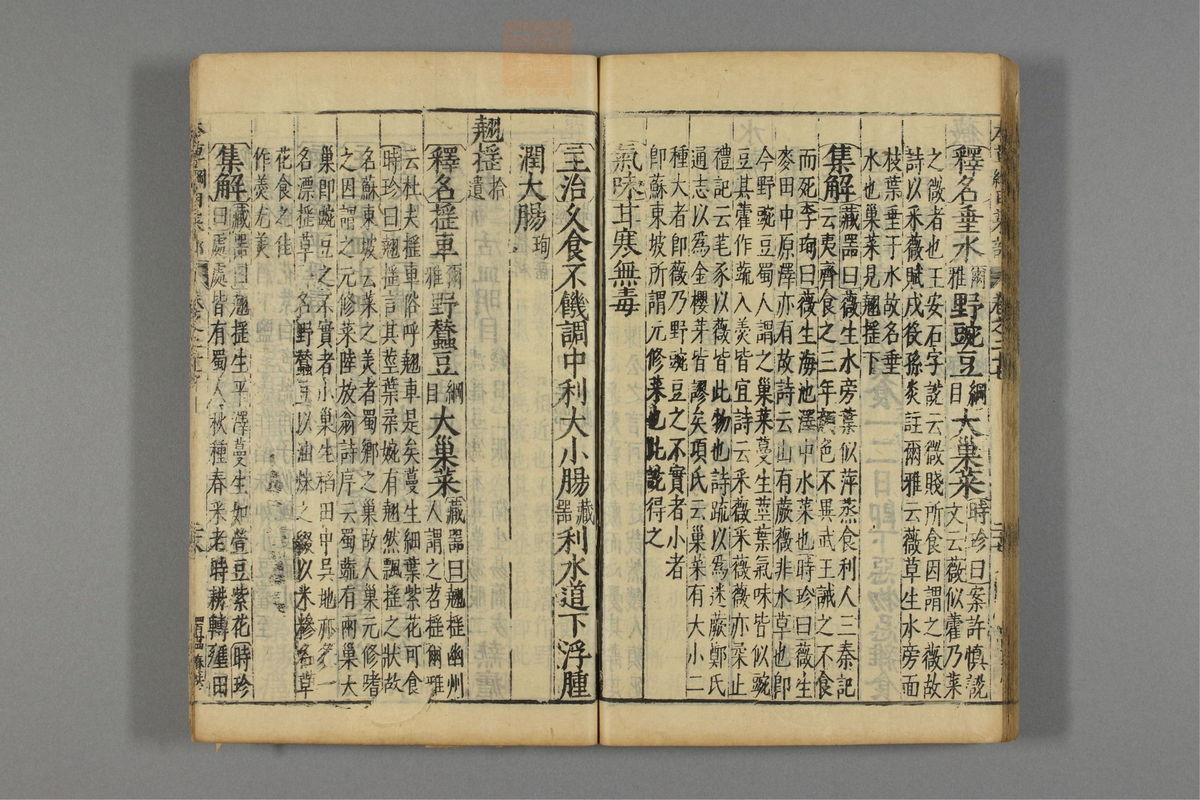 釋名垂水爾雅野豌豆綱目大巢菜時珍曰案許慎說文云薇似藿乃菜
之微者也王安石字說云微賤所食因謂之薇故
詩以采薇賦戍役孫炎註爾雅云薇草生水旁而
枝葉垂于水故名垂
水也巢菜見翹搖下
集解藏器曰薇生水旁葉似萍蒸食利人三秦記
云夷齊食之三年顏色不異武王誡之不食
而死李珣曰薇生海池澤中水菜也時珍曰薇生
麥田中原澤亦有故詩云山有蕨薇非水草也卽
今野豌豆蜀人謂之巢菜蔓生莖葉氣味皆似豌
豆其藿作蔬入羹皆宜詩云采薇采薇薇亦柔止
禮記云芼豕以薇皆此物也詩疏以爲迷蕨鄭氏
通志以爲金櫻芽皆謬矣項氏云巢菜有大小二
種大者卽薇乃野豌豆之不實者小者
卽蘇東坡所謂元修菜也此說得之
氣味甘寒無毒
主治久食不饑調中利大小腸藏器利水道下浮腫
潤大腸珣
翹搖拾遺
釋名搖車爾雅野蠶豆綱目大巢菜藏器曰翹搖幽州人謂之苕搖爾雅
云杜夫搖車俗呼翹車是矣蔓生細葉紫花可食
時珍曰翹搖言其莖葉柔婉有翹然飄搖之狀故
名蘇東坡云菜之美者蜀鄉之巢故人巢元修嗜
之因謂之元修菜陸放翁詩序云蜀蔬有兩巢大
巢卽豌豆之不實者小巢生稻田中吳地亦多一
名漂搖草一名野蠶豆以油煠之綴以米糝名草
花食之佳
作羹尤美
集解藏器曰翹搖生平澤蔓生如䝁豆紫花時珍
曰處處皆有蜀人秋種春采老時耕轉壅田